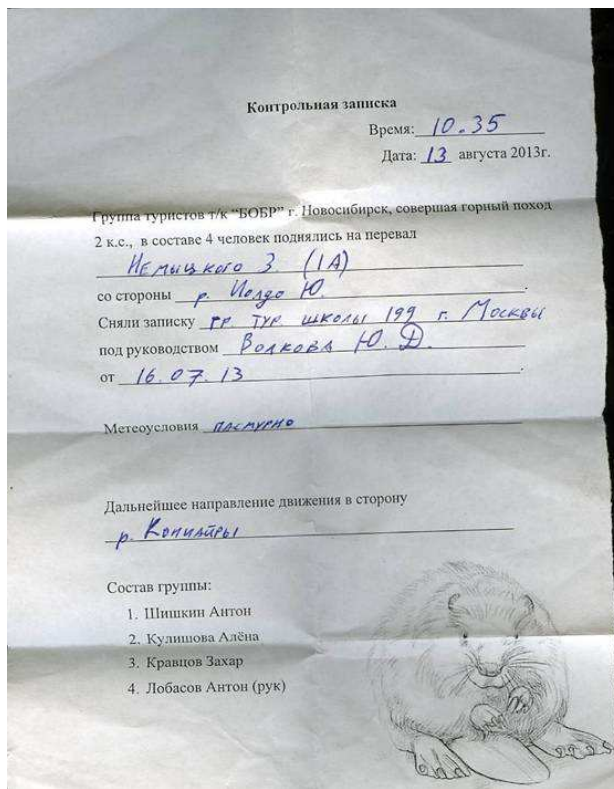 Контрольная записка
Время: 10.35
Дата: 13 августа 2013г.
Группа туристов т/к “БОБР” г. Новосибирск, совершая горный поход
2 к.с., в составе 4 человек поднялись на перевал
Немыцкого З. (1А)
со стороны р. Иолдо Ю.
Сняли записку гр тур школы 199 г. Москвы
под руководством Волкова Ю.Д.
от 16.07.13
Метеоусловия пасмурно
Дальнейшее направление движения в сторону
р.
Состав группы:
1. Шишкин Антон
2. Кулишова Алёна
3. Кравцов Захар
4. Лобасов Антон (рук)